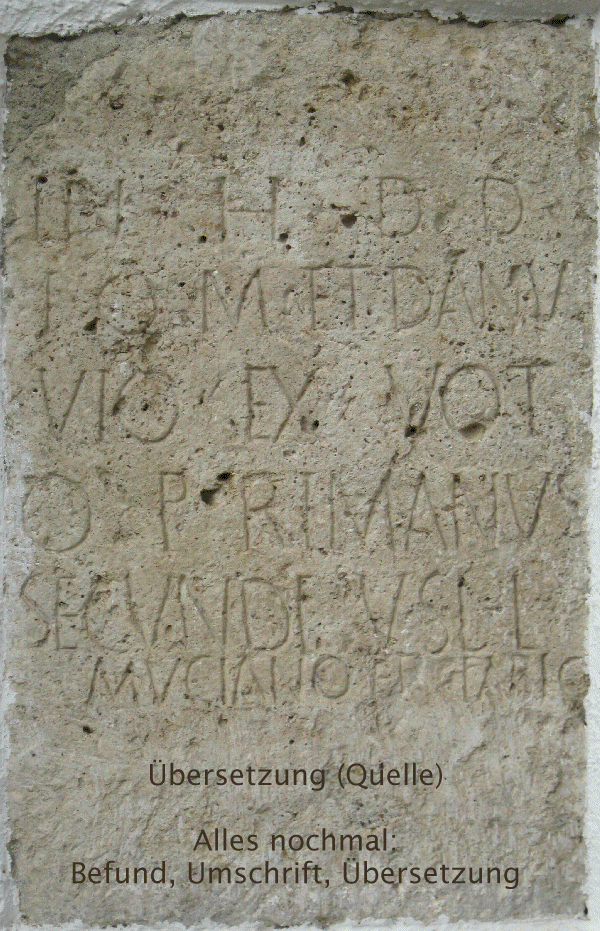 IN H D D
I O M ET DANV
VIO EX VOT
O P RIMANVS
SECVNDI V S L L
MVCIANO ET
Übersetzung (Quelle)
Alles nochmal:
Befund, Umschrift, Übersetzung